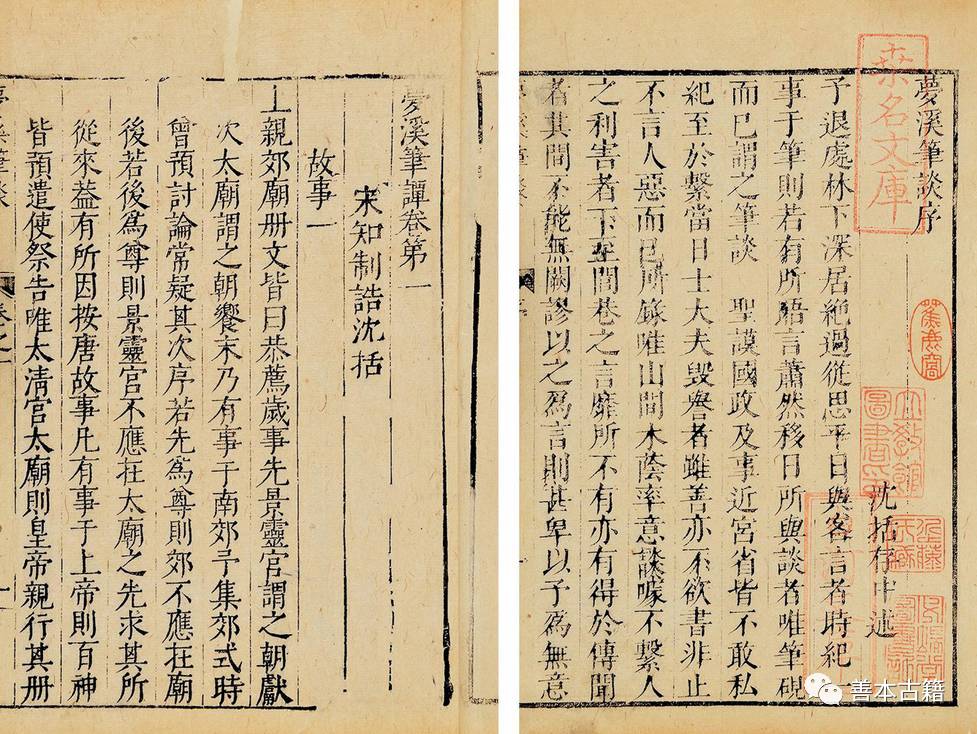 夢溪筆談序
沈括存中述
予退處林下深居絶過從思平日與客言者時紀一
事于筆則若有所晤言蕭然移日所與談者唯筆硯
而已謂之筆談　聖謨國政及事近宮省皆不敢私
紀至於繫當日士大夫毀譽者雖善亦不欲書非止
不言人惡而已所錄唯山間木蔭率意談噱不繫人
之利害者下至閭巷之言靡所不有亦有得於傳聞
者其間不能無闕謬以之爲言則甚卑以予爲無意
桑名文庫
立教館
圖書印
夢溪筆譚卷第一
宋知制誥沈括
故事一
上親郊廟册文皆曰恭薦歲事先景靈宮謂之朝獻
次太廟謂之朝饗末乃有事于南郊予集郊式時
曾預討論常疑其次序若先爲尊則郊不應在廟
後若後爲尊則景靈宮不應在太廟之先求其所
從來蓋有所因按唐故事凡有事于上帝則百神
皆預遣使祭告唯太清宮太廟則皇帝親行其册
善本古籍